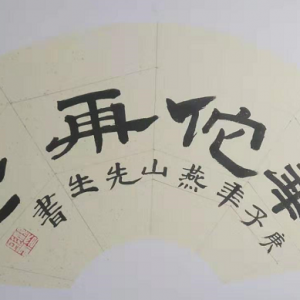 華佗再
庚子年燕山先生書